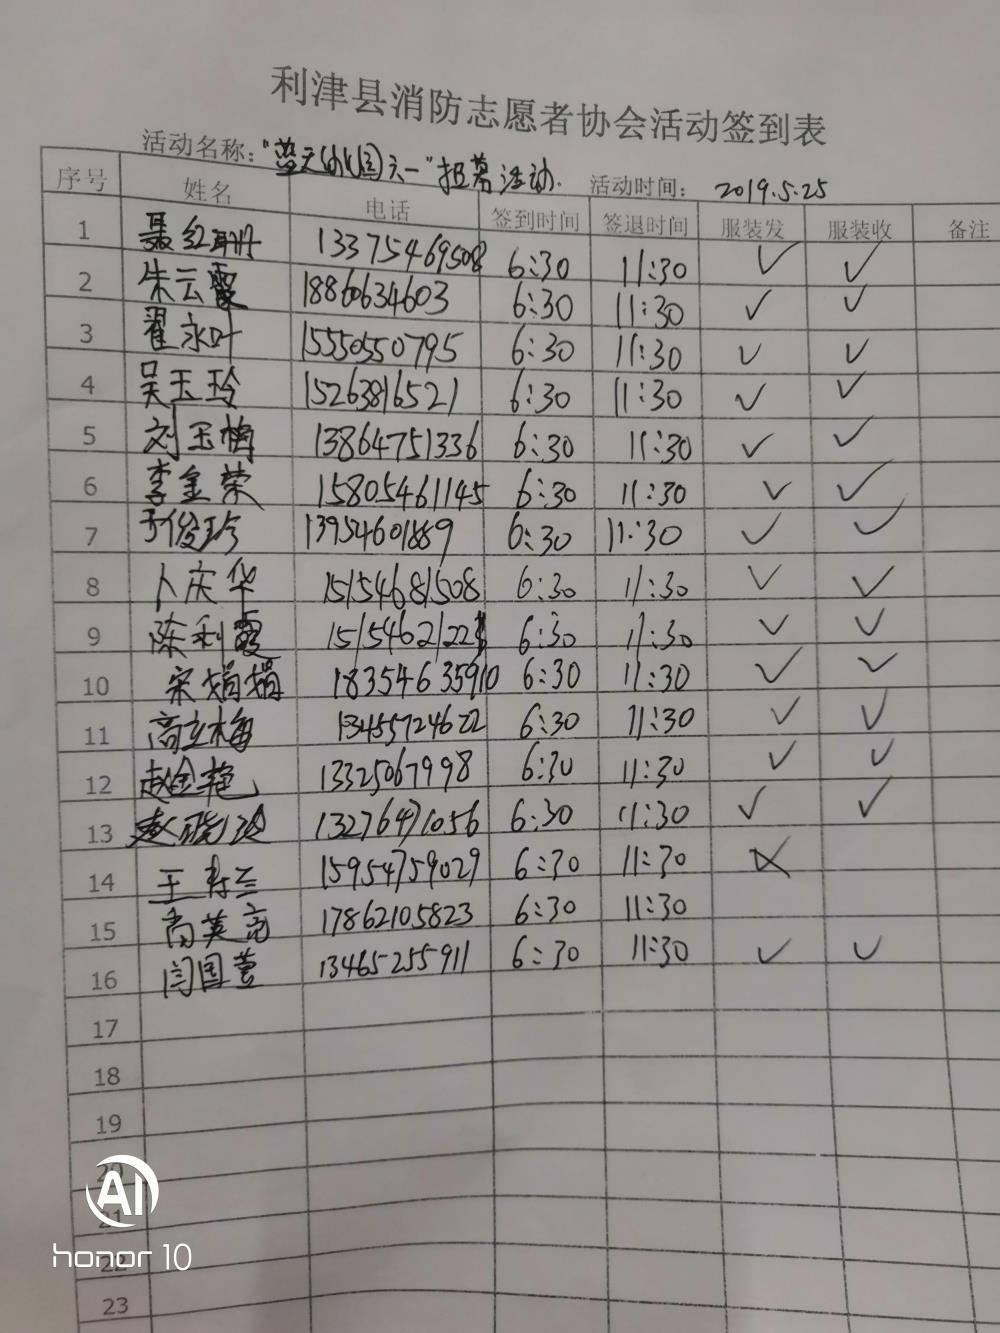 利津县消防志愿者协会活动签到表
活动名称："蓝天幼儿园六一"招募活动. 活动时间： 2019.5.25
序号 姓名 电话 签到时间 签退时间 服装发 服装收 备注
1 聂红丽 13375469508 6:30 11:30 ✓ ✓
2 朱云霞 18860634603 6:30 11:30 ✓ ✓
3 翟永叶 15550550795 6:30 11:30 ✓ ✓
4 吴玉玲 15263816521 6:30 11:30 ✓ ✓
5 刘玉梅 13864751336 6:30 11:30 ✓ ✓
6 李金荣 15805461145 6:30 11:30 ✓ ✓
7 于俊珍 13954601889 6:30 11:30 ✓ ✓
8 卜庆华 15154681508 6:30 11:30 ✓ ✓
9 陈利霞 6:30 11:30 ✓ ✓
10 宋娟娟 18354635910 6:30 11:30 ✓ ✓
11 高立梅 13455724622 6:30 11:30 ✓ ✓
12 赵金艳 13325067998 6:30 11:30 ✓ ✓
13 13276471056 6:30 11:30 ✓ ✓
14 王寿兰 15954759029 6:30 11:30
15 尚英亮 17862105823 6:30 11:30
16 闫国萱 13465255911 6:30 11:30 ✓ ✓
17
18
19
20
21
22
23
AI
honor 10